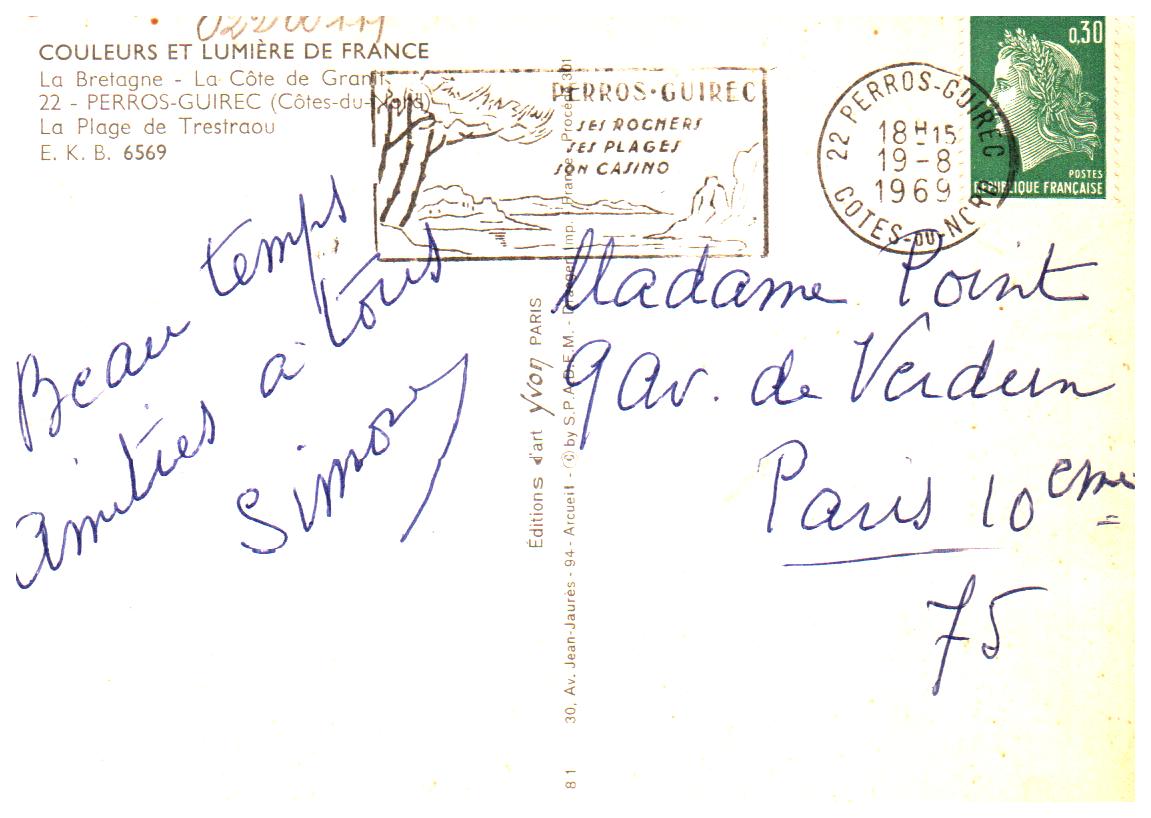 COULEURS ET LUMIÈRE DE FRANCE
La Bretagne - La Côte de Granit
22 - PERROS-GUIREC (Côtes-du-Nord)
La Plage de Trestraou
E. K. B. 6569
PERROS-GUIREC
SES ROCHERS
SES PLAGES
SON CASINO
22 PERROS-GUIREC
18H15
19-8
1969
COTES-DU-NORD
0,30
POSTES
RÉPUBLIQUE FRANÇAISE
Beau temps
Amitiés à tous
Simone
Éditions d'art Yvon PARIS
81 30, Av. Jean-Jaurès - 94 - Arcueil - © by S.P.A.D.E.M. - Draeger, Imp. France - Procédé 301
Madame Point
9 av. de Verdun
Paris 10eme
75